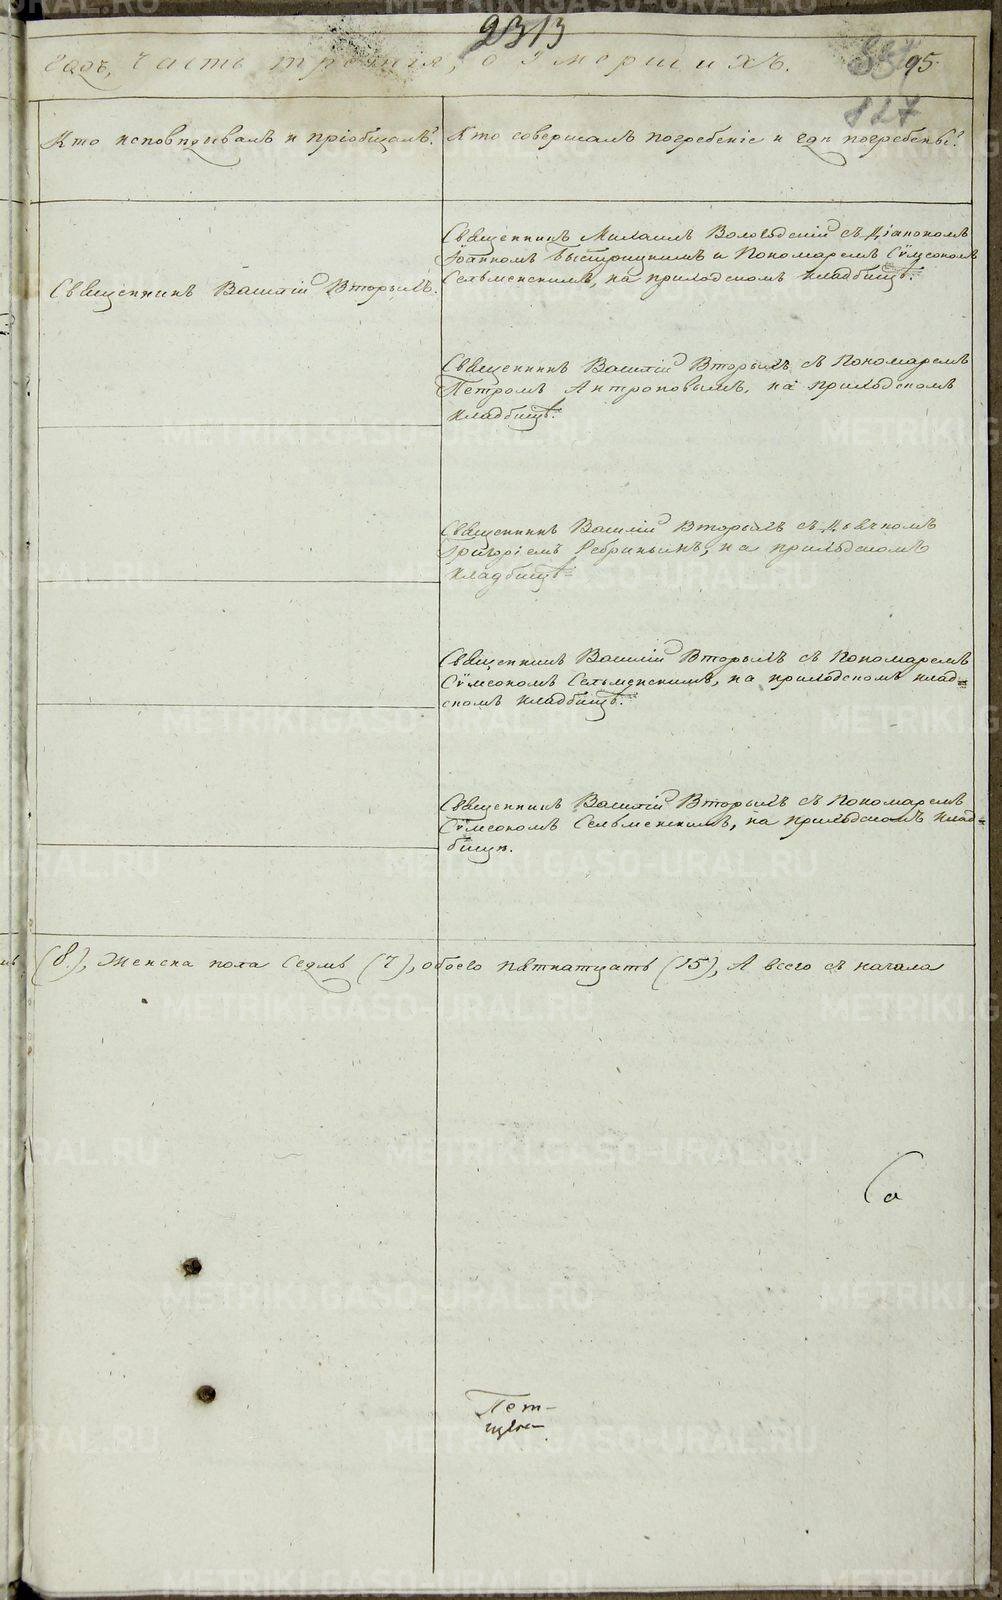 2313
годъ, часть третія, о Умершихъ. 95
827
Кто исповѣдывалъ и пріобщалъ?
Кто совершалъ погребеніе и гдѣ погребены?
Священникъ Василій Вторыхъ.
Священникъ Михаилъ Вологодскій съ Діакономъ
Іоанномъ Быстрицкимъ и Пономаремъ Сѵмеономъ
Сельменскимъ, на приходскомъ кладбищѣ.
Священникъ Василій Вторыхъ съ Пономаремъ
Петромъ Антроповымъ, на приходскомъ
кладбищѣ.
Священникъ Василій Вторыхъ съ Дьячкомъ
Григоріемъ Ребринымъ, на приходскомъ
кладбищѣ
Священникъ Василій Вторыхъ съ Пономаремъ
Сѵмеономъ Сельменскимъ, на приходскомъ клад=
скомъ кладбищѣ.
Священникъ Василій Вторыхъ съ Пономаремъ
Сѵмеономъ Сельменскимъ, на приходскомъ клад=
бищѣ.
(8), Женска пола Седмь (7), обоего пятнатцать (15), А всего съ начала
METRIKI.GASO-URAL.RU